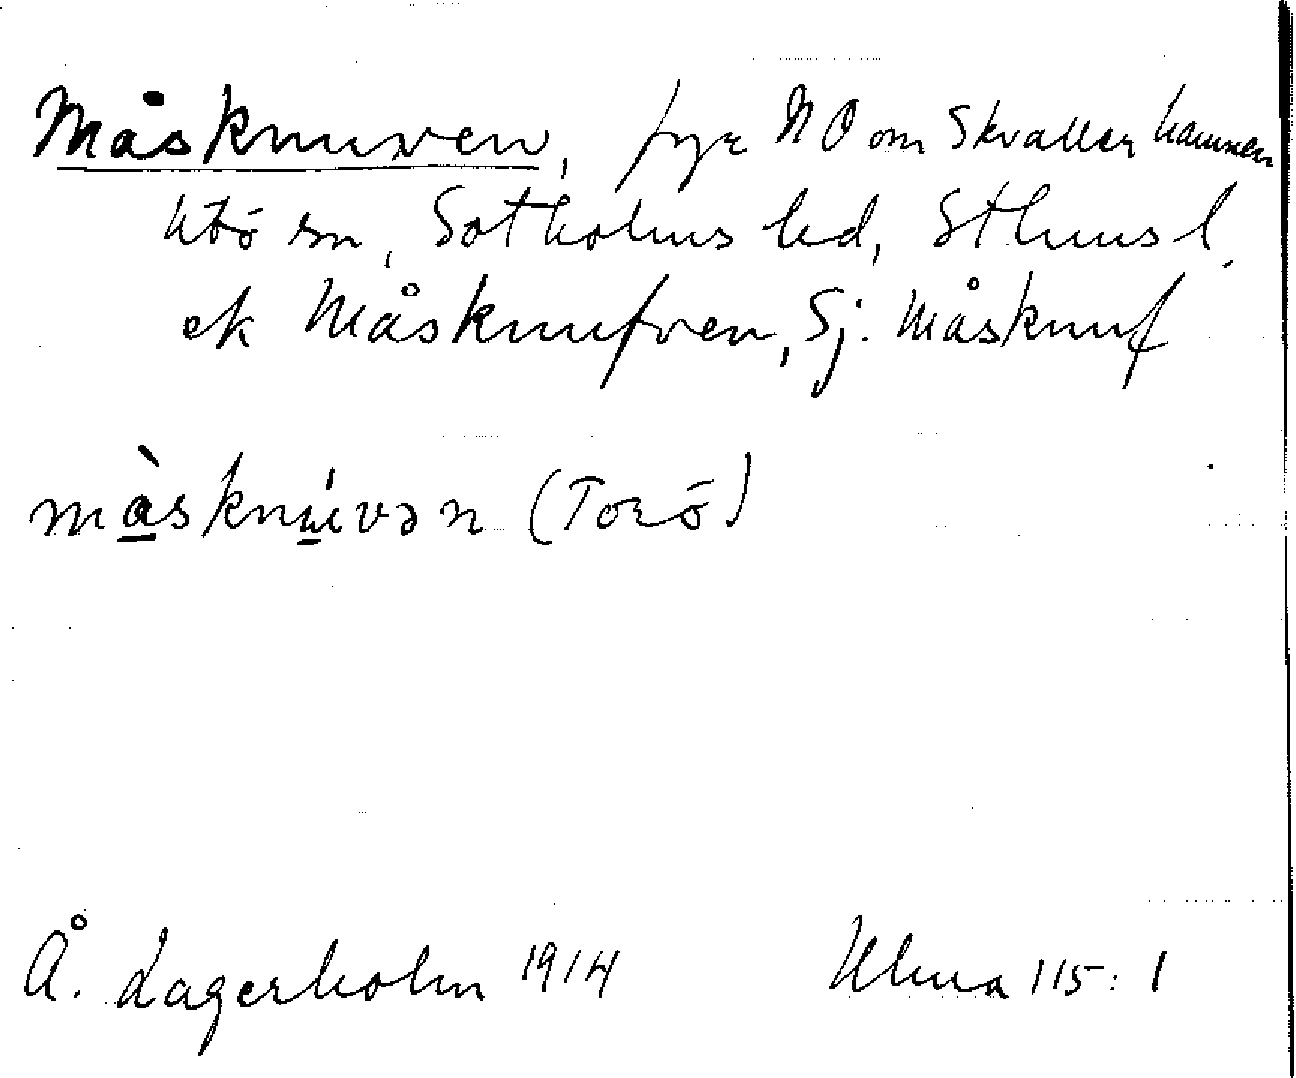 Måsknuven, fyr NO om Skvallerhamnen
Utö sn, Sotholms hd, Sthms l.
ek Måsknufven, Sj. Måsknuf
màsknúvən (Torö)
Å. Lagerholm 1914 Ulma 115:1